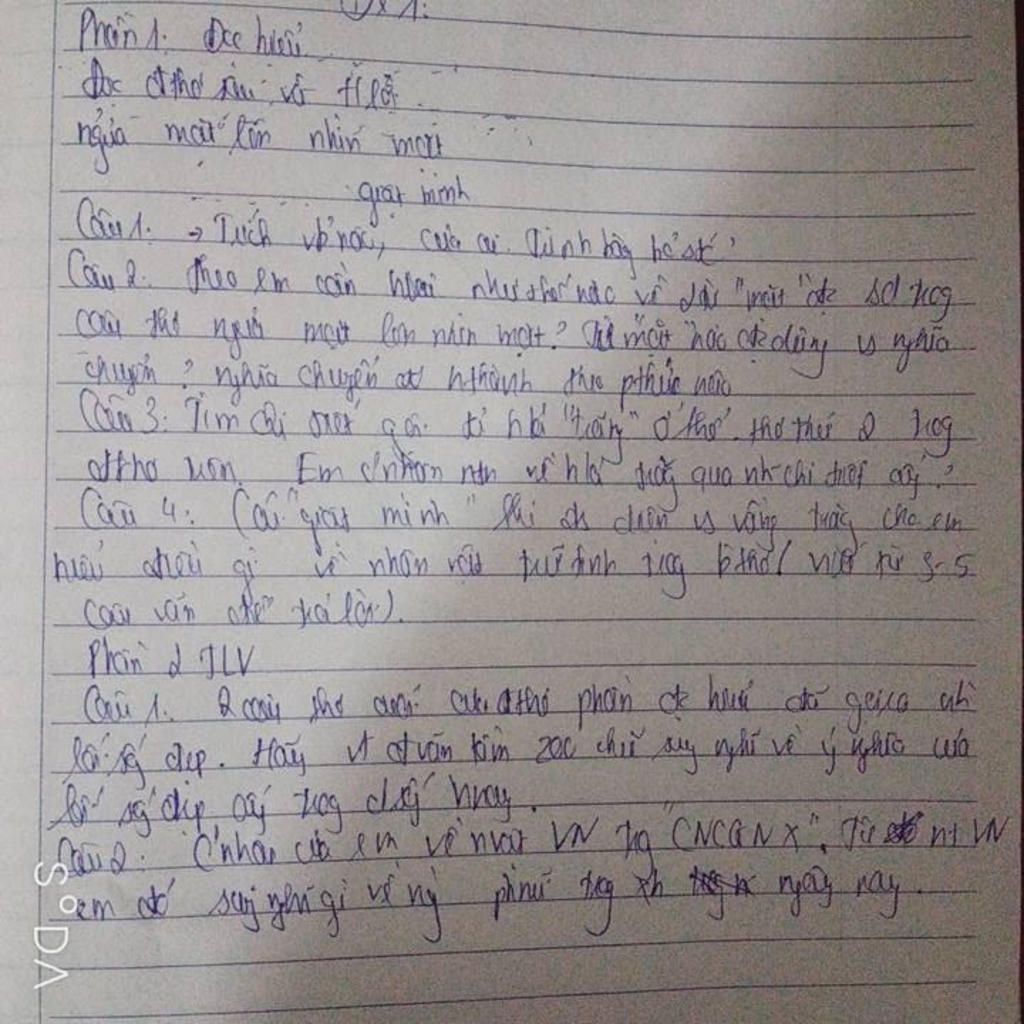 Phần 1. Đọc hiểu
Đọc đ thơ sau và tl
ngửa mặt lên nhìn mặt
giật mình
Câu 1. → Trích vb nào, của ai. Trình bày
Câu 2. Theo em cần hiểu như thế nào về "mặt" đc sd tog
câu thơ ngửa mặt lên nhìn mặt? Từ mặt nào đc dùng vs nghĩa
chuyển? nghĩa chuyển đc hthành theo pthức nào
Câu 3. Tìm chi "trăng" ở thơ thứ 2 tog
đthơ trên. Em qua nh chi tiết ấy?
Câu 4: (Cái "giật mình" khi vs vầng trăng cho em
hiểu điều gì về nhân vật trữ tình tog bthơ (viết từ 3-5
câu văn để trả lời).
Phần 2 TLV
Câu 1. 2 câu thơ cuối của đthơ phần đọc hiểu
lối sg đẹp. Hãy vt đvăn 200 chữ suy nghĩ về ý nghĩa của
lối sg đẹp ấy tog hnay.
Câu 2. C nhận của em về nvật VN tg "CNCGNX". Từ nv VN
em có suy nghĩ gì về ng phụ nữ tog xh ngày nay.
SoDA